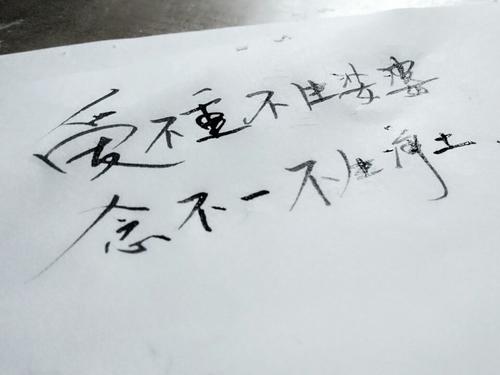 爱不重不生娑婆
念不一不生净土